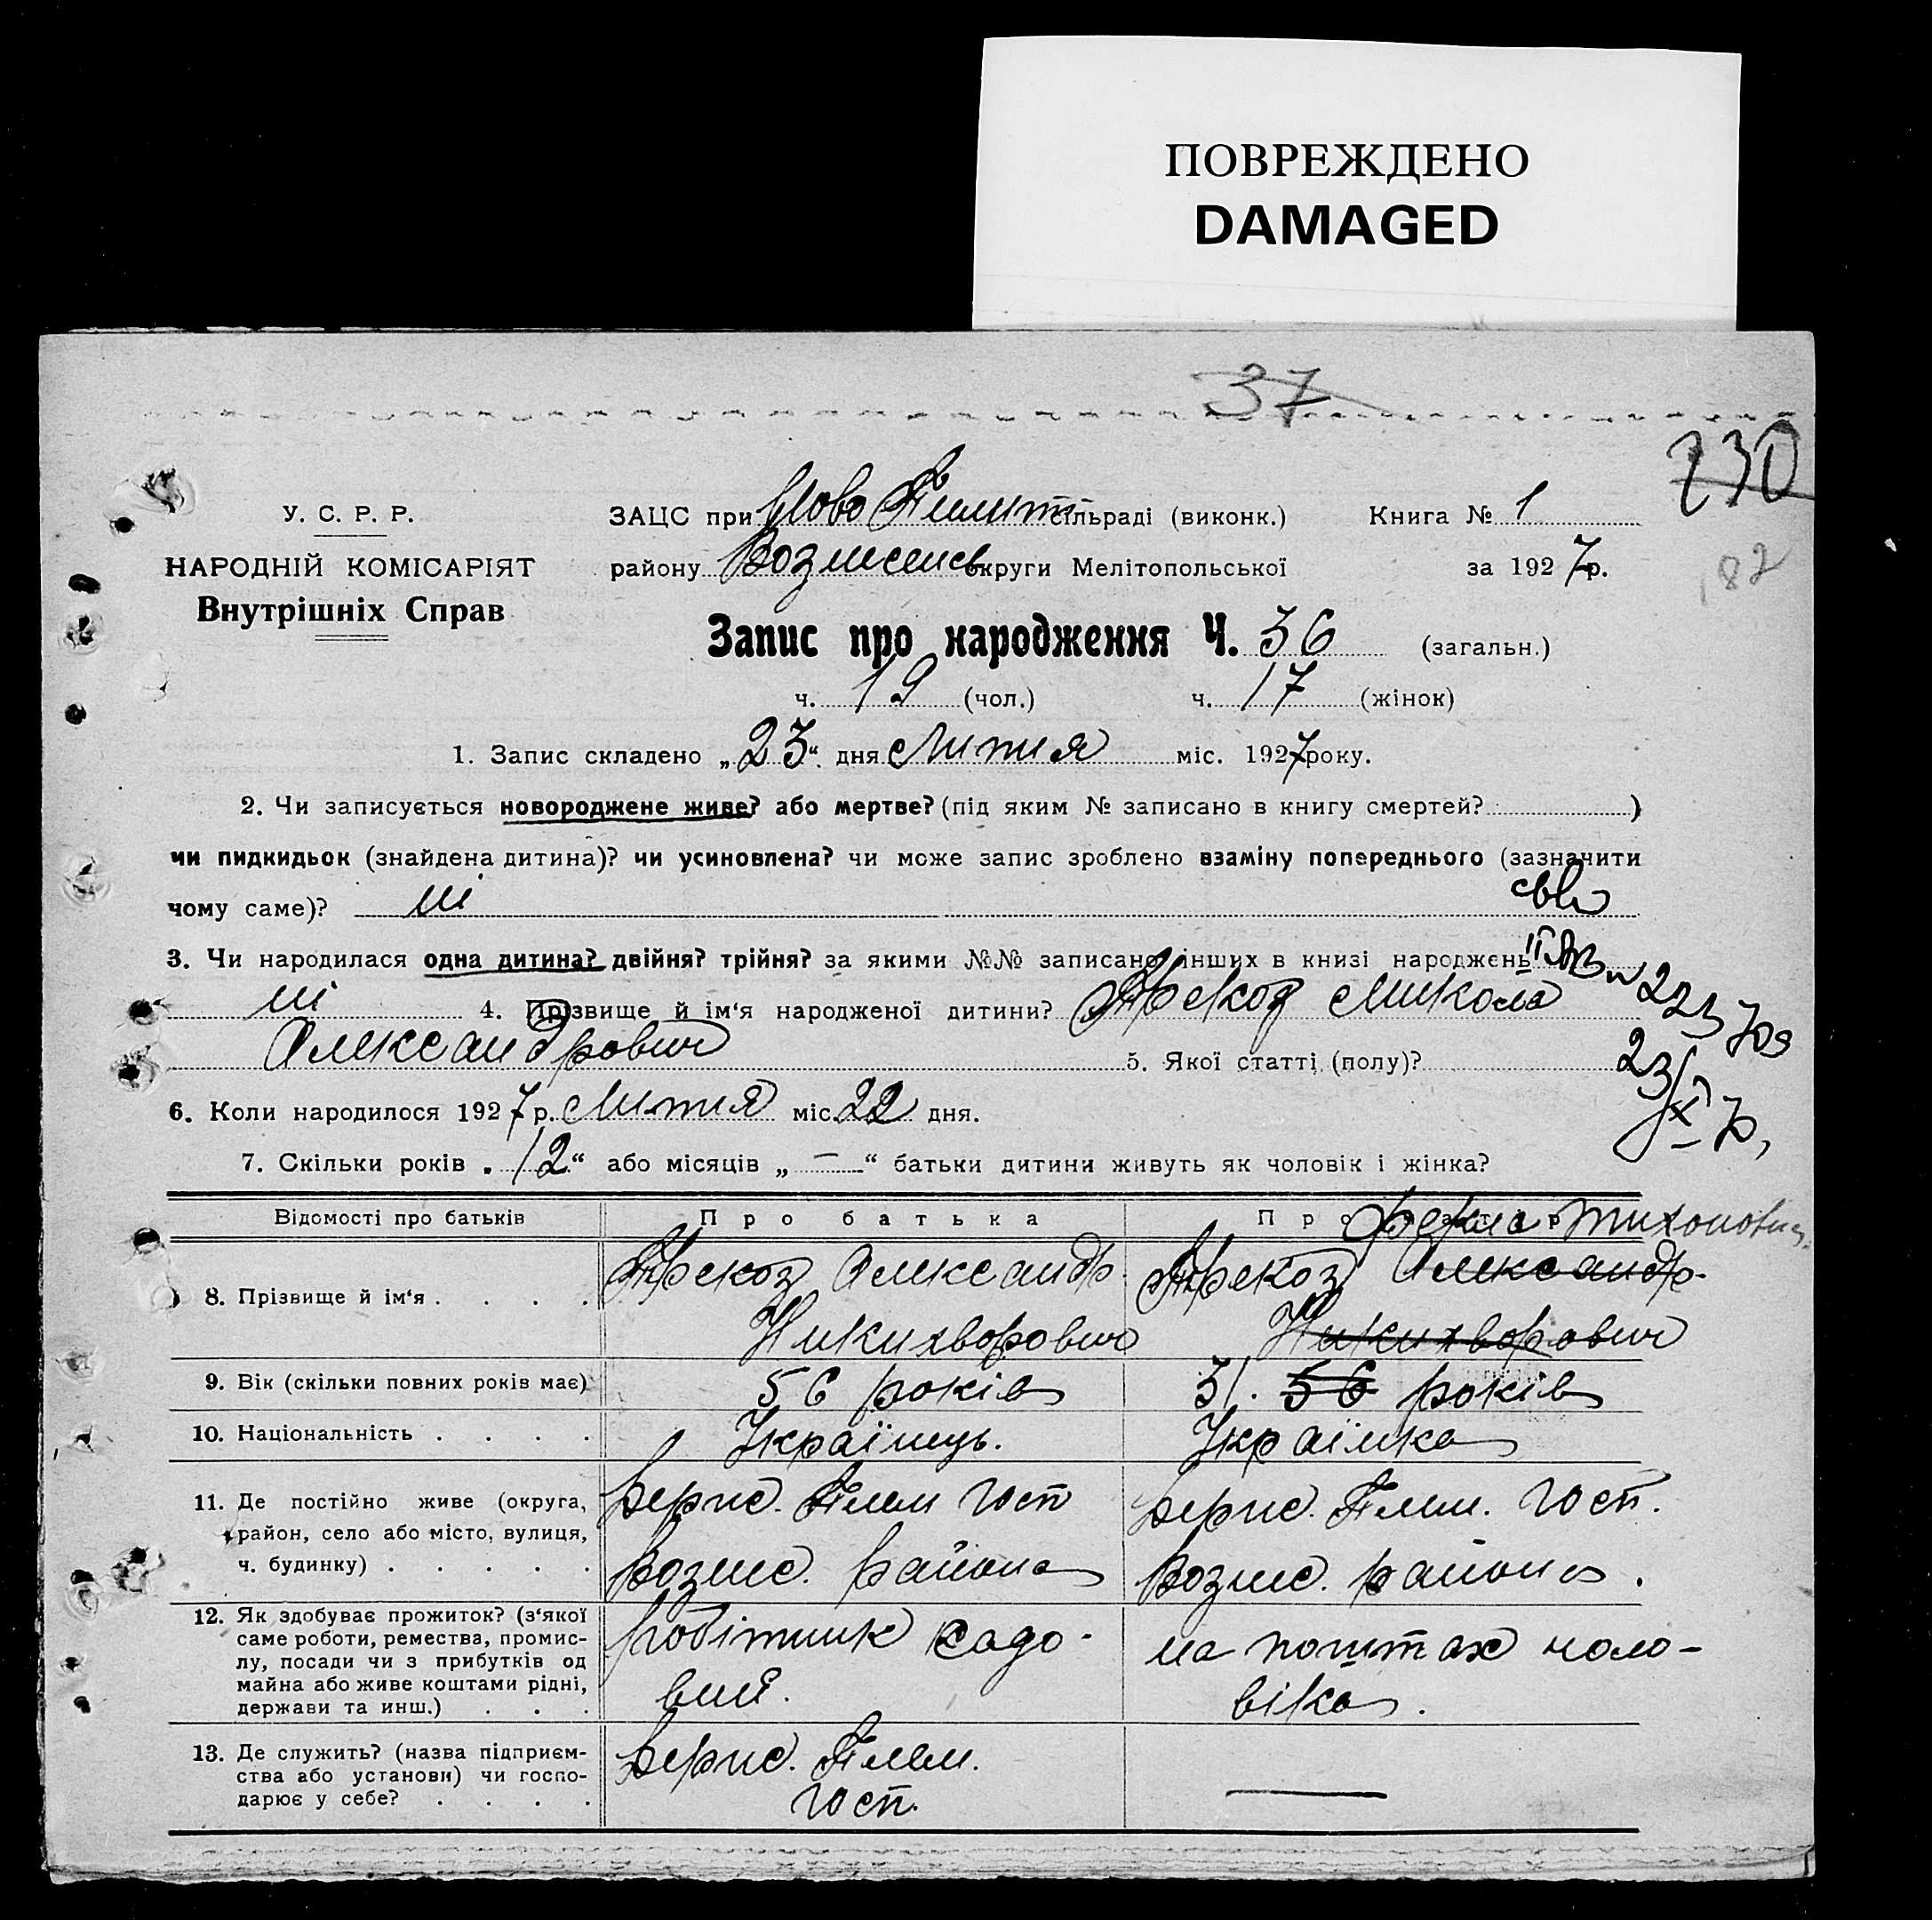 ПОВРЕЖДЕНО
DAMAGED
37
230
182
У. С. Р. Р.
НАРОДНІЙ КОМІСАРІЯТ
Внутрішніх Справ
ЗАЦС при Ново сільраді (виконк.) Книга № 1
району Вознесенсь округи Мелітопольської за 1927 р.
Запис про народження Ч. 36 (загальн.)
ч. 19 (чол.) ч. 17 (жінок)
1. Запис складено „23“ дня Липня міс. 1927 року.
2. Чи записується новороджене живе? або мертве? (під яким № записано в книгу смертей? )
чи пидкидьок (знайдена дитина)? чи усиновлена? чи може запис зроблено взаміну попереднього (зазначити
чому саме)? ні
3. Чи народилася одна дитина? двійня? трійня? за якими №№ записано інших в книзі народжень
ні 4. Прізвище й ім‘я народженої дитини? Прекоз Микола
Александрович 5. Якої статті (полу)?
6. Коли народилося 1927 р. Липня міс. 22 дня.
7. Скільки років „12“ або місяців „—“ батьки дитини живуть як чоловік і жінка?
Відомості про батьків Про батька Про матір Фекла Тихоновна
8. Прізвище й ім‘я . . . . Прекоз Александр Никихворович Прекоз Александр Никихворович
9. Вік (скільки повних років має) 56 років 31. 56 років
10. Національність . . . . Українець. Українка
11. Де постійно живе (округа, район, село або місто, вулиця, ч. будинку) . . . . . Верис. Плем Госп Возне. района Верис. Плем. Госп. Возне. района.
12. Як здобуває прожиток? (з‘якої саме роботи, ремества, промислу, посади чи з прибутків од майна або живе коштами рідні, держави та инш.) . . . робітник садовий. на коштах чоловіка.
13. Де служить? (назва підприємства або установи) чи господарює у себе? . . . . Верис. Плем. Госп. —